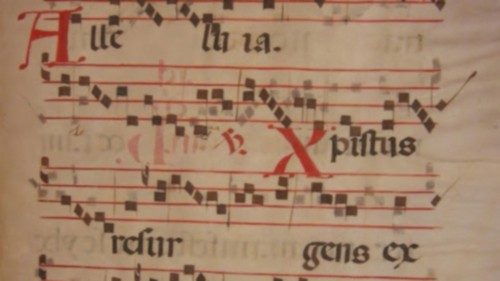 Alle lu ia.
℣. Xpistus
resur gens ex